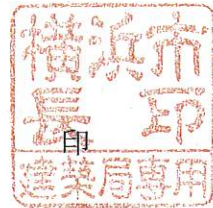 横浜市
長印
印
建築局専用